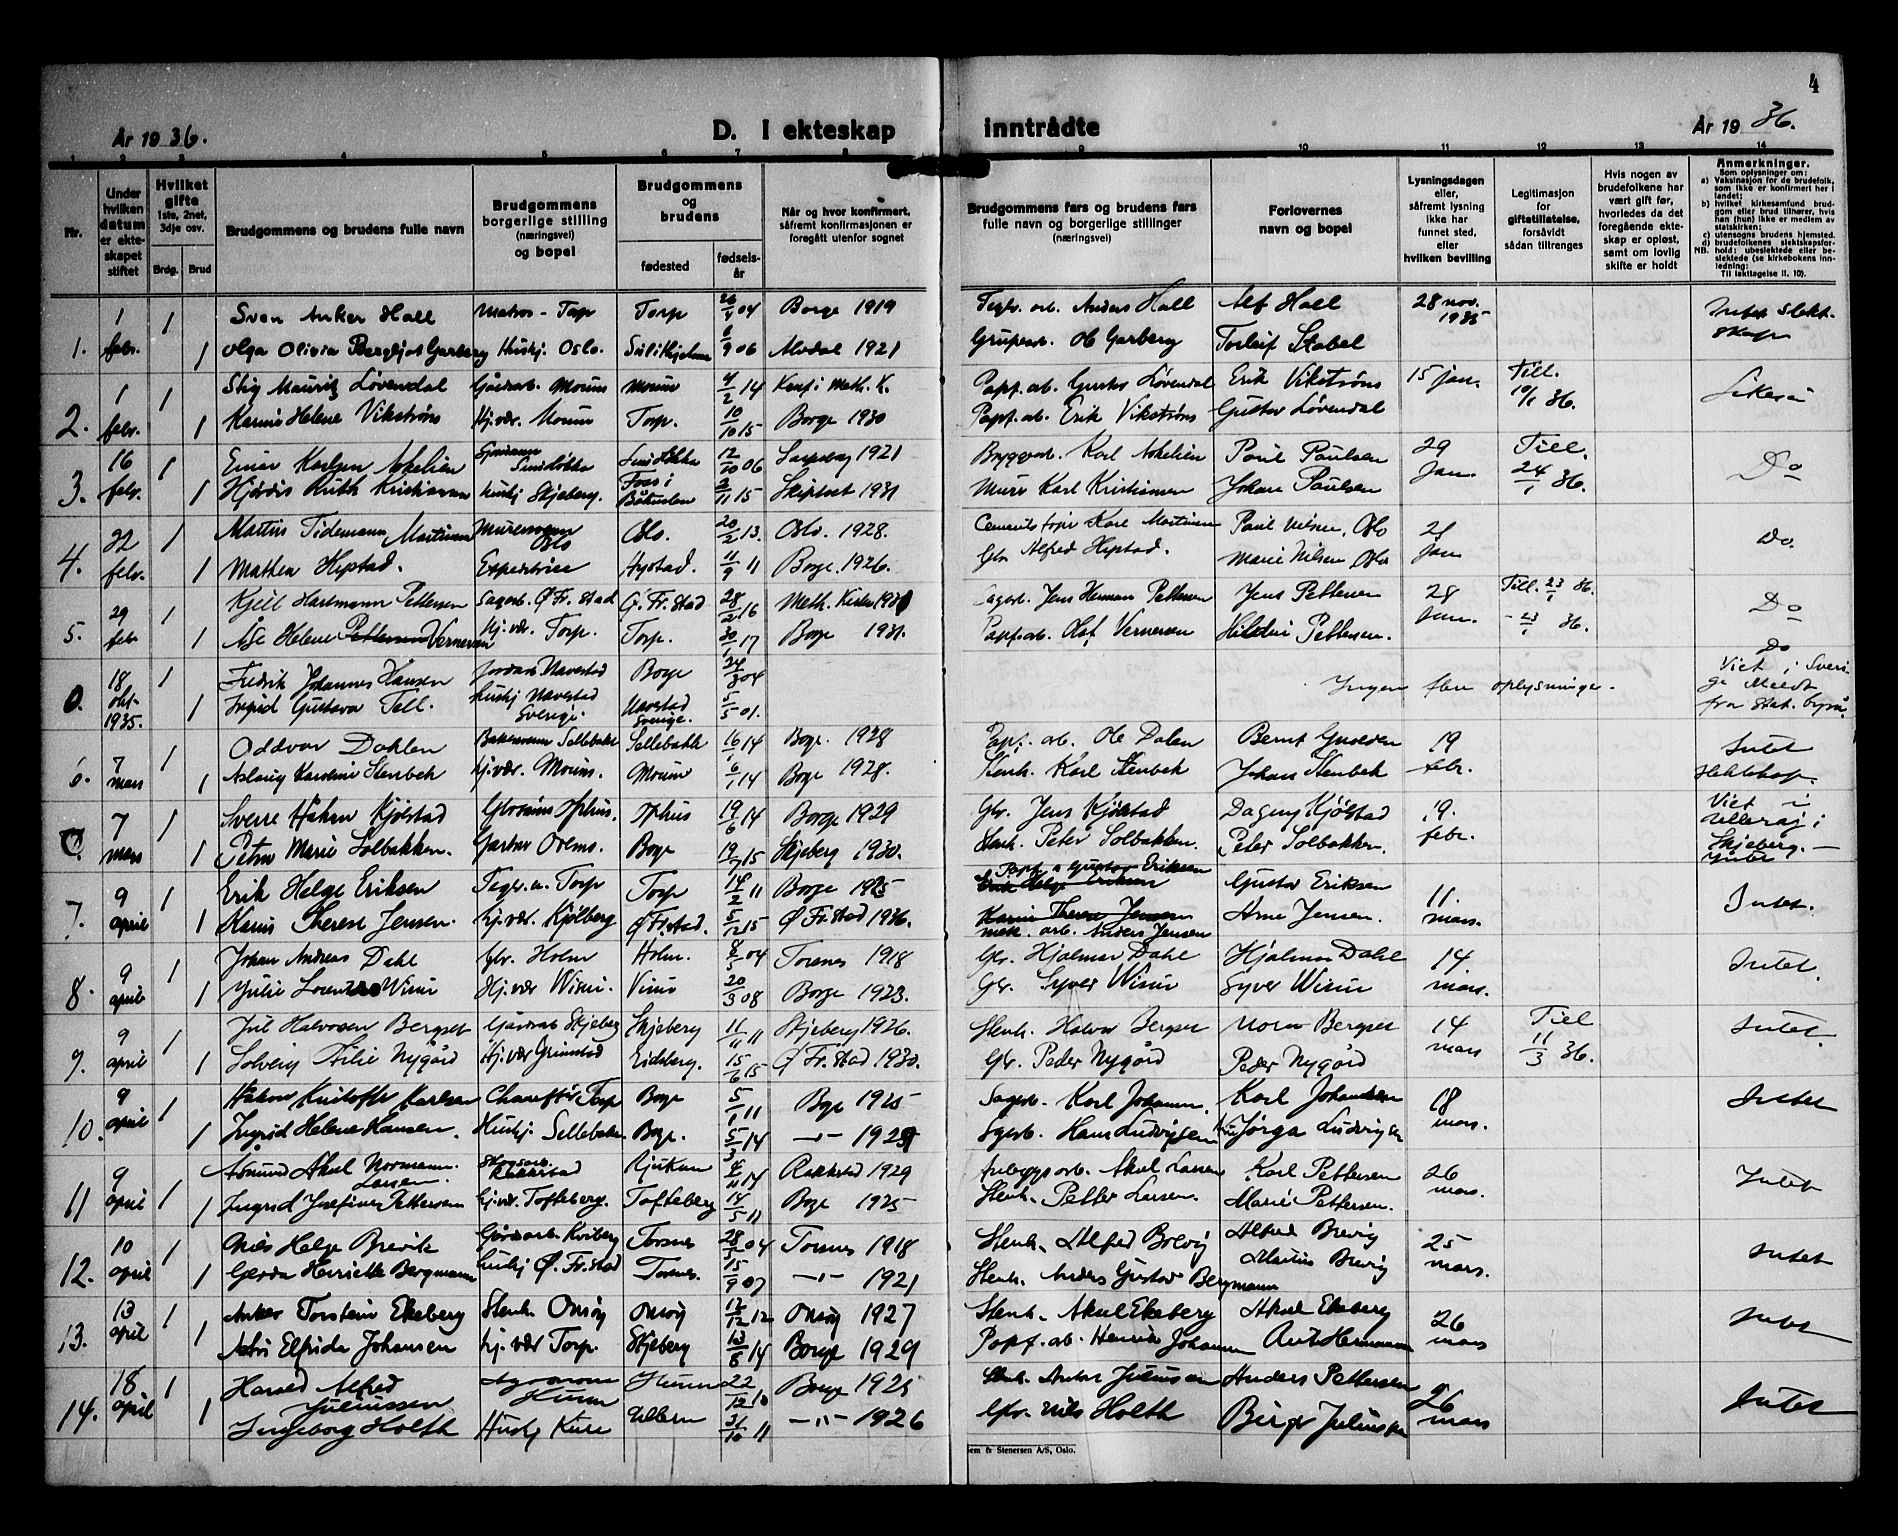 4
År 19 36.
D. I ekteskap inntrådte
År 19 36.
1 2 3 4 5 6 7 8 9 10 11 12 13 14
Nr.
Under hvilken datum er ekteskapet stiftet
Hvilket gifte 1ste, 2net, 3dje osv.
Brdg. Brud
Brudgommens og brudens fulle navn
Brudgommens borgerlige stilling (næringsvei) og bopel
Brudgommens og brudens
fødested
fødselsår
Når og hvor konfirmert, såfremt konfirmasjonen er foregått utenfor sognet
Brudgommens fars og brudens fars fulle navn og borgerlige stillinger (næringsvei)
Forlovernes navn og bopel
Lysningsdagen eller, såfremt lysning ikke har funnet sted, eller hvilken bevilling
Legitimasjon for giftetillatelse, forsåvidt sådan tiltrenges
Hvis nogen av brudefolkene har vært gift før, hvorledes da det foregående ekteskap er opløst, samt om lovlig skifte er holdt
Anmerkninger.
Som oplysninger om:
a) Vaksinasjon for de brudefolk, som ikke er konfirmert her i landet;
b) hvilket kirkesamfund brudgom eller brud tilhører, hvis han (hun) ikke er medlem av statskirken;
c) utensogns brudens hjemsted.
d) brudefolkenes slektskapsforhold: ubeslektede eller beslektede (se kirkebokens innledning:
NB. Til iakttagelse II. 10).
1. 1 febr. 1 Sven Anker Hall Matros - Torp Torp 26/4 04 Borge 1919 Anders Hall Alf Hall 28 nov. 1935 Intet slektskap
1 Olga Olivia Bergljot Garberg Hushj. Oslo. 6/9 06 1921 Ole Garberg Torleif Stabel
2. 1 febr. 1 Stig Mauritz Løvendal Gårdsarb. Moum Moum 4/2 14 Papf. arb. Gustav Løvendal Erik Vikstrøm 15 jan. Till. 10/1 36.
1 Karin Helene Vikstrøm Hj.vær. Moum Torp. 10/10 15 Borge 1930 Papf. arb. Erik Vikstrøm Gustav Løvendal
3. 16 febr. 1 Einar Karlsen Askelien 12/10 06 Sarpsborg 1921 Karl Askelien Paul Paulsen 29 jan. Till. 24/1 36. Do
1 Hjørdis Ruth Kristiansen Hushj Skjeberg. Foss i Båhuslen 2/11 15 1931 Murer Karl Kristiansen Johan Paulsen
4. 22 febr. 1 Tidemann Martinsen Oslo Oslo. 20/2 13. Oslo. 1928. Karl Martinsen Paul Nilsen, Oslo 21 jan Do.
1 Mathea 11/9 11 Borge. 1926. Gbr. Alfred Marie Nilsen, Oslo
5. 29 febr 1 Kjell Hartmann Pettersen Sagarb. Ø. Fr.stad G. Fr. Stad 28/2 16 Meth. Kirken 1931 Sagarb. Jens Herman Pettersen Jens Pettersen 28 jan. Till. 23/1 36. Do
1 Åse Helene Pettersen Vernersen Hj.vær. Torp. Torp. 30/1 17 Borge 1931. Papf. arb. Olaf Vernersen Pettersen. - 23/1 36.
0. 18 okt. 1935. 1 Fredrik Johannes Hansen Navestad Borge 24/3 04 Ingen flere oplysninger. Do Viet i Sverige Meldt fra Stat. byrå.
1 Ingrid Gustava Tell. Hushj Navestad Sverige. Navestad Sverige. 5/5 01.
6. 7 mars 1 Oddvar Dahlen Sellebakk Sellebakk 16/1 14 Borge. 1928 Papf. arb. Ole Dalen Bernt 19 febr. Intet slektskap.
1 Aslaug Karoline Stenbek Hj.vær. Moum. Moum 6/1 14 Borge 1928. Stenh. Karl Stenbek Johan Stenbek
7 mars 1 Sverre Håkon Kjølstad Ophus. Ophus 19/6 14 Borge 1929 Gbr. Jens Kjølstad Dagny Kjølstad 19. febr. Viet i Ullerøy i Skjeberg. - Intet
1 Petra Marie Solbakken. Borge 19/7 15 Skjeberg 1930. Stenh. Peter Solbakken. Peter Solbakken.
7. 9 april 1 Erik Helge Eriksen Torp Torp 14/2 11 Borge 1925 Papf. a Gustav Eriksen Erik Helge Eriksen Gustav Eriksen 11. mars. Intet.
1 Karin Therese Jensen. Hj.vær. Kjølberg Ø Fr.stad. 5/12 15 Ø Fr. stad 1936. Karin Therese Jensen mek. arb. Anders Jensen Arne Jensen.
8. 9 april 1 Johan Andreas Dahl gbr. Holm Holm. 8/5 04 Torsnes 1918 Gbr. Hjalmar Dahl Hjalmar Dahl 14. mars. Intet.
1 Julie 20/3 08 Borge 1923. Gbr. Syver Syver
9. 9 april 1 Halvorsen Bergset Gårdsarb Skjeberg Skjeberg 11/11 11 Skjeberg 1926. Stenh. Halvor Bergset Bergset 14 mars Till 11/3 36. Intet.
1 Solveig Nygård Hj.vær Grimstad Eidsberg. 15/6 15 Ø Fr. stad 1930. Gbr. Peder Nygård Peder Nygård
10. 9 april 1 Håkon Kristoffer Karlsen Chauffør Torp Borge 5/1 11 Borge 1925 Sagarb. Karl Johansen. Karl Johansen 18 mars. Intet
1 Ingrid Helene Hansen. Hushj. Sellebakk Borge. 5/3 14 -"- 1929 Sagarb. Hans Ludvigsen Jørga Ludvigsen
11 9 april 1 Åsmund Aksel Normann Larsen. Rakkestad Rjukan 4/11 14 Rakkestad 1929 Anleggsarb. Aksel Larsen Karl Pettersen 26 mars. Intet
1 Ingrid Josefine Pettersen Hj.vær. Tofteberg. Tofteberg 14/5 11 Borge 1925 Stenh. Petter Larsen. Marie Pettersen.
12. 10 april 1 Nils Helge Brevik Gårdsarb. Torsnes 28/3 04 Torsnes 1918 Stenh. Alfred Brevig Alfred Brevig 25 mars. Intet
1 Gerda Henriette Bergmann Hushj Ø. Fr.stad Torsnes. 15/9 07 -"- 1921 Stenh. Anders Gustav Bergmann Brevig
13. 13 april 1 Anker Torstein Ekeberg Stenh. Onsøy Onsøy 12/12 12 Onsøy 1927 Stenh. Aksel Ekeberg Aksel Ekeberg 26 mars Intet
1 Astri Elfrida Johansen Hj.vær Torp. Skjeberg 13/8 14 Borge 1929 Papf. ab. Henrik Johansen Ant Hermansen
14. 18 april 1 Harald Alfred Juliussen Agronom Hunn Hunn 22/12 10 Borge 1925 Stenh. Anton Juliussen Anders Pettersen 26 mars Intet
1 Ingeborg Holth Hushj Kure 31/10 11 -"- 1926 Gbr. Nils Holth Birger Juliussen
Sem & Stenersen A/S, Oslo.